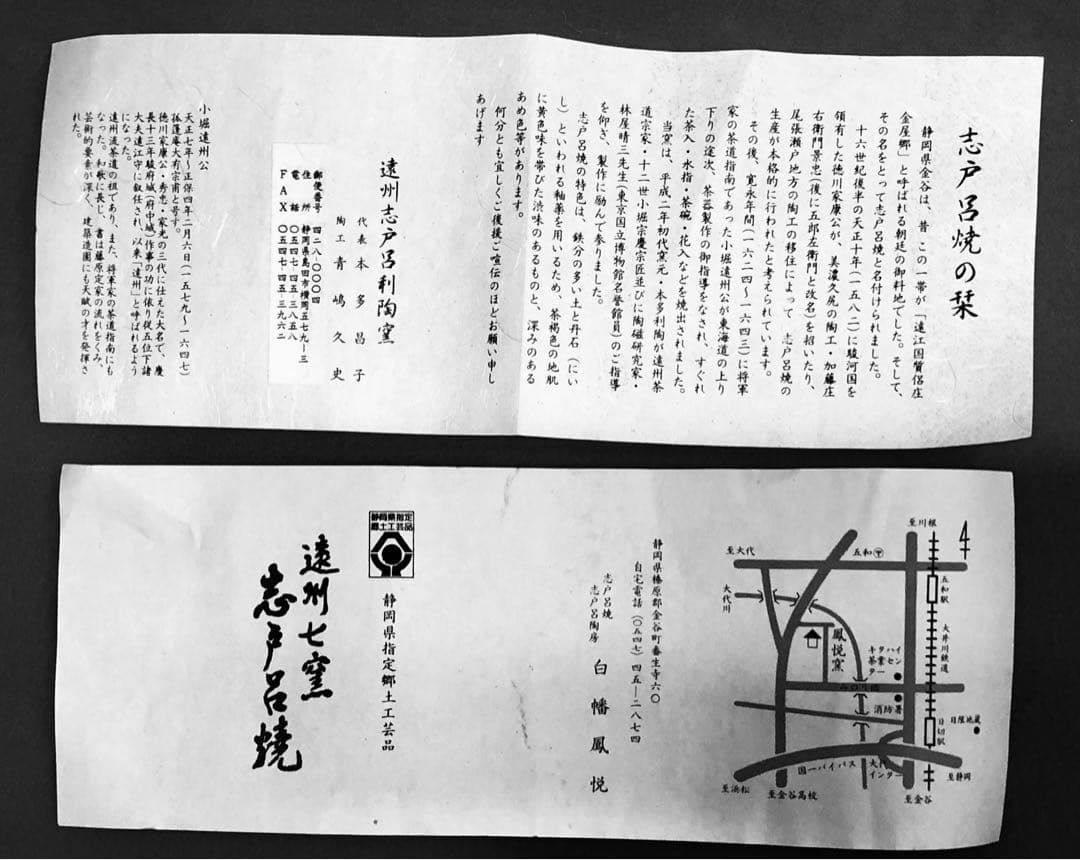 志戸呂焼の栞
静岡県金谷は、昔 この一帯が「遠江国質侶庄
金屋郷」と呼ばれる朝廷の御料地でした。そして、
その名をとって志戸呂焼と名付けられました。
十六世紀後半の天正十年(一五八二)に駿河国を
領有した徳川家康公が、美濃久尻の陶工・加藤庄
右衛門景忠(後に五郎左衛門と改名)を招いたり、
尾張瀬戸地方の陶工の移住によって 志戸呂焼の
生産が本格的に行われたと考えられています。
その後、寛永年間(一六二四〜一六四三)に将軍
家の茶道指南であった小堀遠州公が東海道の上り
下りの途次、茶器製作の御指導をなされ、すぐれ
た茶入・水指・茶碗・花入などを焼出されました。
当窯は、平成二年初代窯元・本多利陶が遠州茶
道宗家・十二世小堀宗慶宗匠並びに陶磁研究家・
林屋晴三先生(東京国立博物館名誉館員)のご指導
を仰ぎ、製作に励んで参りました。
志戸呂焼の特色は、鉄分の多い土と丹石(にい
し)といわれる釉薬を用いるため、茶褐色の地肌
に黄色味を帯びた渋味のあるものと、深みのある
あめ色等があります。
何分とも宜しくご後援ご喧伝のほどお願い申し
あげます
遠州志戸呂利陶窯
代表 本多昌子
陶工 青嶋久史
郵便番号 四二八-〇〇〇四
住所 静岡県島田市横岡五七九-三
電話 〇五四七-四五-三八五八
FAX 〇五四七-四五-三九六二
小堀遠州公
天正七年〜正保四年二月六日(一五七九〜一六四七)
孤篷庵大有宗甫と号す。
徳川家康公・秀忠・家光の三代に仕えた大名で、慶
長十三年駿府城(府中城)作事の功に依り従五位下諸
大夫遠江守に叙任され、以来「遠州」と呼ばれるよう
になった。
遠州流茶道の祖であり、また、将軍家の茶道指南にも
なった。和歌に長じ、書は藤原定家の流れをくみ、
芸術的要素が深く、建築造園にも天賦の才を発揮さ
れた。
至川根
五和駅
大井川鉄道
日切駅
日限地蔵
至静岡
至金谷
至大代
五和〒
大代川
鳳悦窯
ハイセンター
消防署
国一バイパス
大代インター
至浜松
至金谷高校
静岡県榛原郡金谷町番生寺六〇
自宅電話(〇五四七)四五―二八七四
志戸呂焼
志戸呂陶房
白幡鳳悦
静岡県指定
郷土工芸品
静岡県指定郷土工芸品
遠州七窯
志戸呂焼